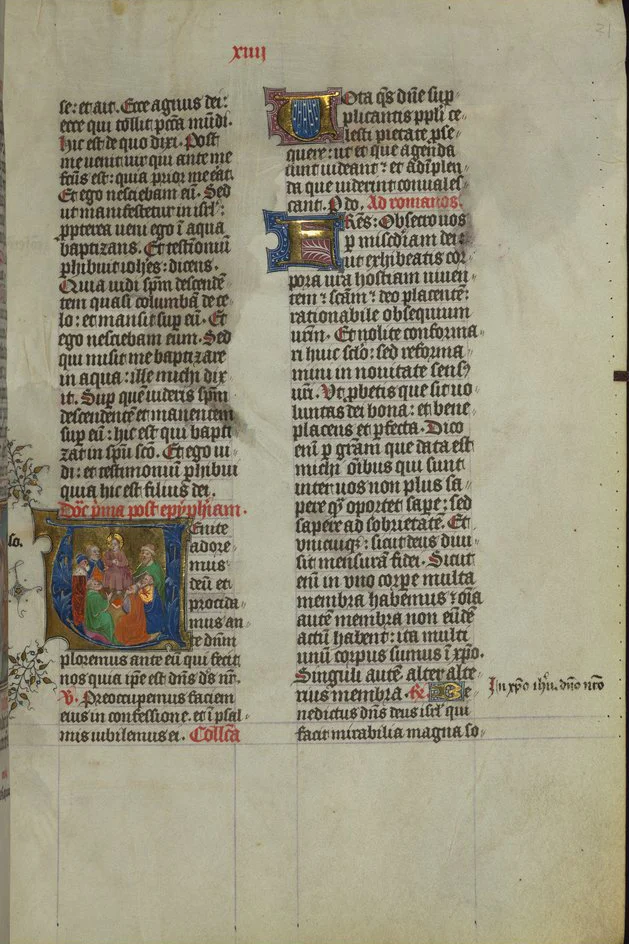 21
xiiij
se: et ait. Ecce agnus dei:
ecce qui tollit pctā mūdi.
hic est de quo dixi. Post
me venit vir qui ante me
fctūs est: quia prior me erat.
Et ego nesciebam eū. Sed
ut manifestetur in isrl̄:
ppterea veni ego ī aqua
baptizans. Et testioniū
phibuit iohēs: dicens.
Quia vidi spm̄ descendē
tem quasi columbā de ce
lo: et mansit sup eū. Et
ego nesciebam eum. Sed
qui misit me baptizare
in aqua: ille michi dix
it. Sup quē videris spm̄
descendentē et manentem
sup eū: hic est qui bapti
zat in spū scō. Et ego vi
di: et testimoniū phibui
quia hic est filius dei.
Dōc pma post epyphiam.
so.
Enite
adore
mus
deū et
procida
mus an
te dnm̄
ploremus ante eū qui fecit
nos quia ipē est dn̄s ds̄ nr̄.
V. Preoccupemus faciem
eius in confessione. et ī psal
mis iubilemus ei. Collcā
Uota qs̄ dn̄e sup
plicantis ppli ce
lesti pietate pse
quere: ut et que agenda
sunt videant: et adīplen
da que viderint conuales
cant. P do. Ad romanos.
FRēs: Obsecro vos
p misc̄diam dei:
ut exhibeatis cor
pora vr̄a hostiam viuen
tem ⁊ scām ⁊ deo placentē:
rationabile obsequium
vrm̄. Et nolite conforma
ri huic sclo: sed reforma
mini in nouitate sensꝰ
vr̄i. Vt pbetis que sit vo
luntas dei bona: et bene
placens et pfecta. Dico
eni p grām que data est
michi oībus qui sunt
inter vos non plus sa
pere qꝫ oportet sape: sed
sapere ad sobrietatē. Et
vnicuiqꝫ: sicut deus diui
sit mensurā fidei. Sicut
eni in vno corpe multa
membra habemus ⁊ oīa
autē membra non eūdē
actū habent: ita multi
unū corpus sumus ī xpo.
Singuli autē alter alte
rius membra. R Be
nedictus dn̄s deus isrl̄ qui
facit mirabilia magna so
In xp̄o ih̄u. dn̄o nr̄o